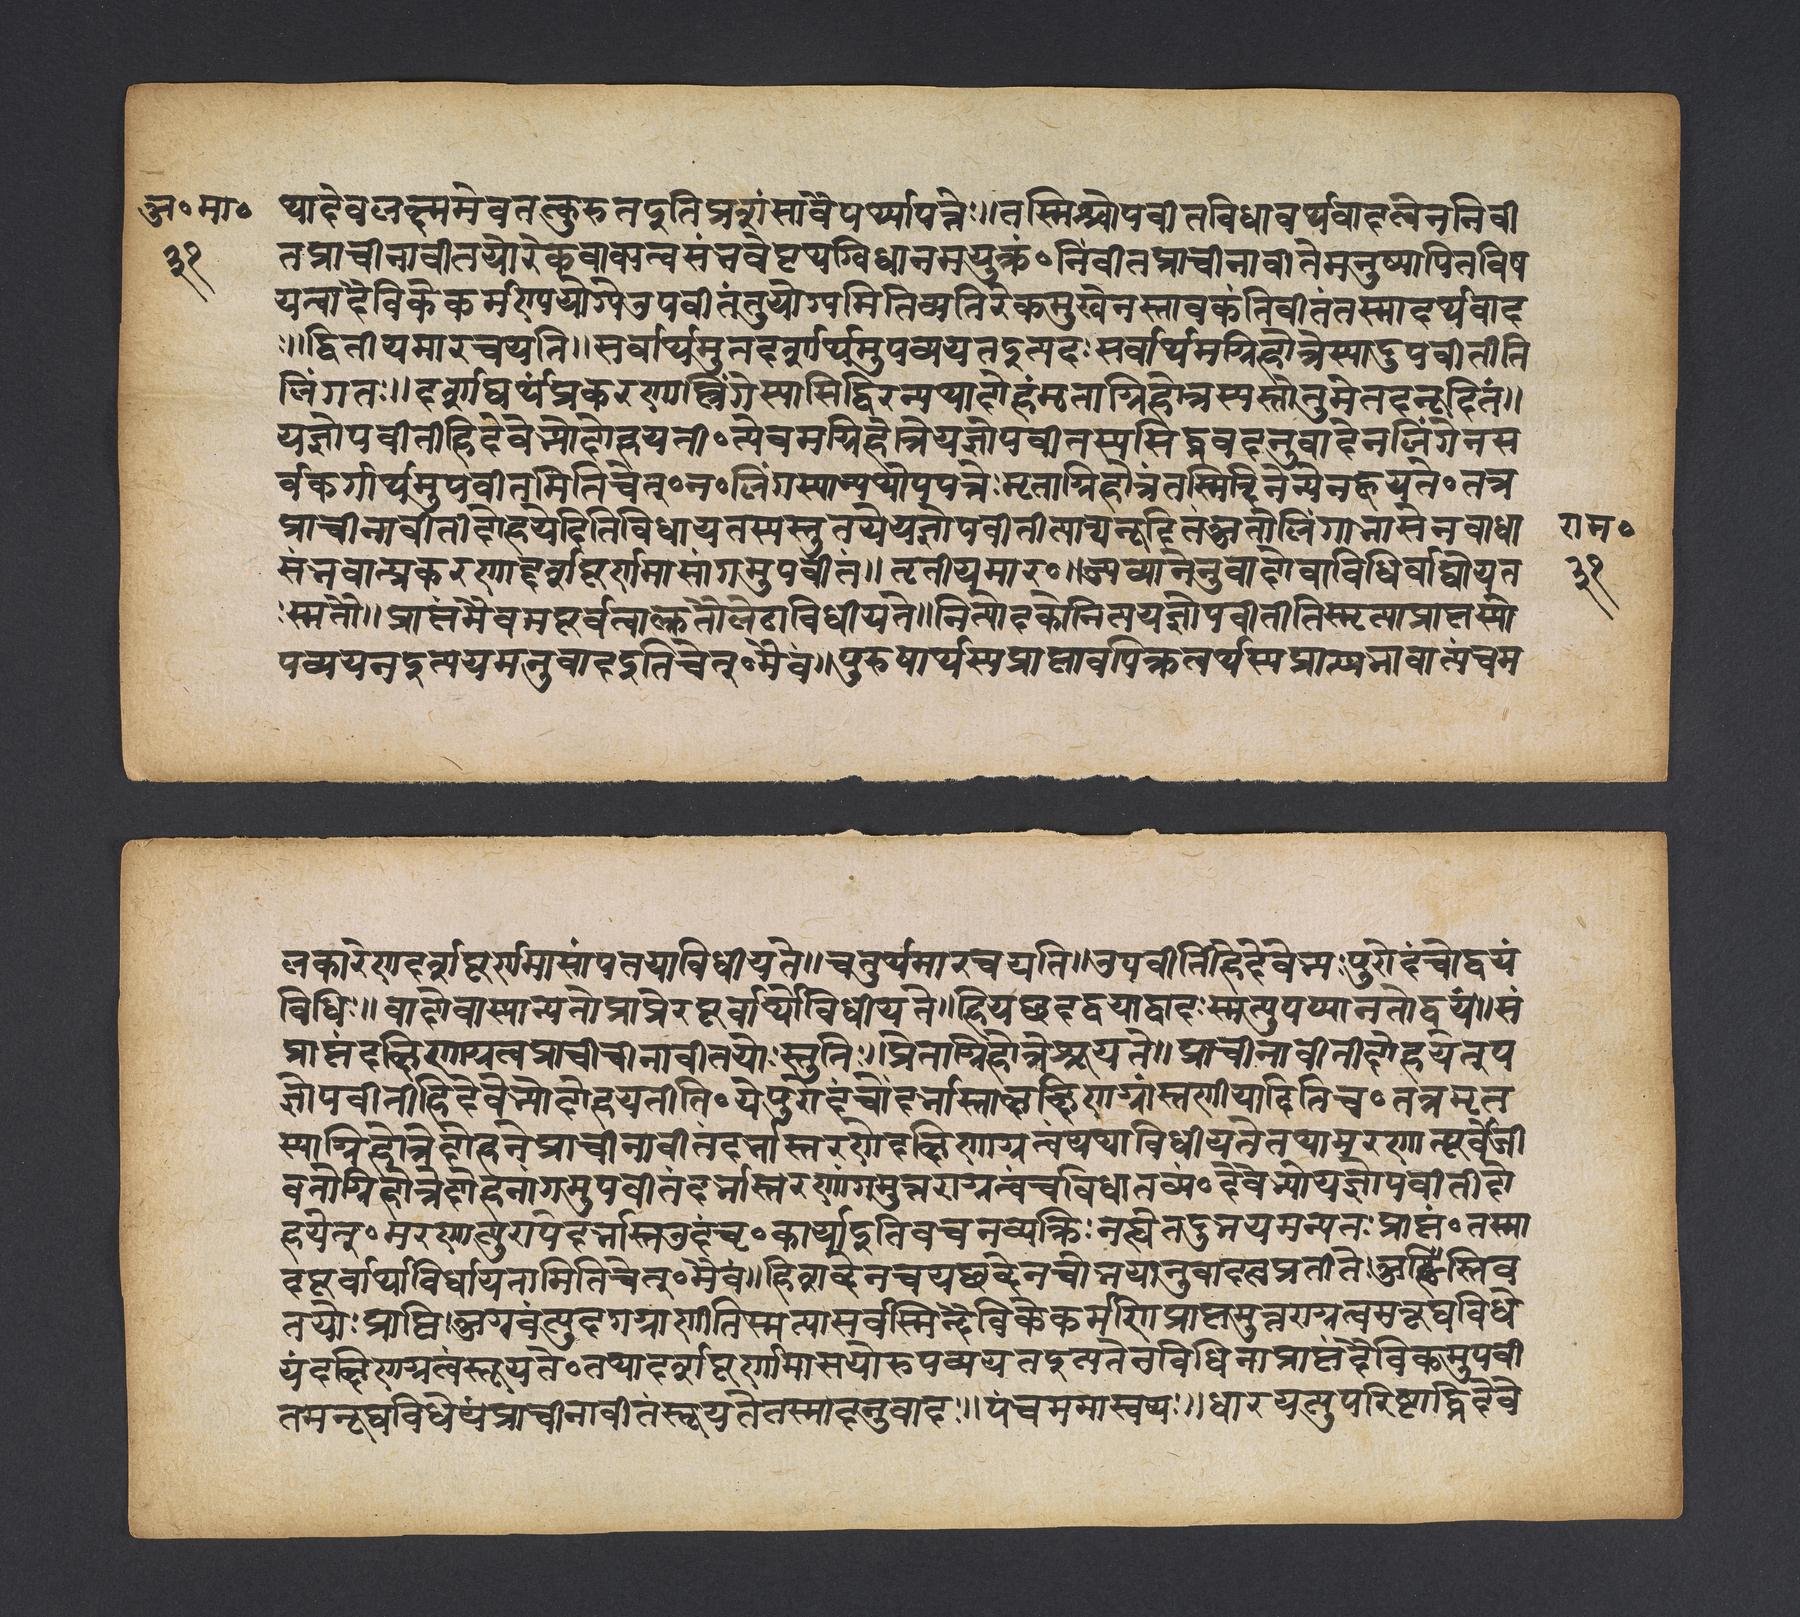 अ॰मा॰
३१
थादेवलक्ष्ममेवतत्कुरुतइतिप्रशंसावैपर्य्यापत्तेः॥तस्मिन्न्योपवीतविधावर्थवादत्वेननिवी
तप्राचीनावीतयोरेकवाक्यत्वसंभवेपृथग्विधानमयुक्तं॰निवीतप्राचीनावीतेमनुष्यपितृविष
यत्वाद्दैविकेकर्मण्ययोग्येउपवीतंतुयोग्यमितिव्यतिरेकमुखेनस्तावकंनिवीतंतस्मादर्थवाद
ः॥द्वितीयमारचयति॥सर्वार्थमुतदर्शार्थमुपव्ययतइत्यदः सर्वार्थमग्निहोत्रेस्यादुपवीतीति
लिंगतः॥दर्शाद्यर्थंप्रकरणाल्लिंगेस्यासिद्धिरन्यथादोहंमृताग्निहोत्रस्यस्तोतुमेतदनूदितं॥
यज्ञोपवीतीहिदेवेभ्योदोहयती॰त्येवमग्निहोत्रेयज्ञोपवीतस्यसिद्धवदनुवादेनलिंगेनस
र्वकर्गार्थमुपवीतमितिचेत्॰न॰लिंगस्यान्यथोपपत्तेः मृताग्निहोत्रंतस्मिन्दिनेन्येनहूयते॰तत्र
प्राचीनावीतीदोहयेदितिविधायतस्यस्तुतयेयज्ञोपवीतीत्याद्यनूदितंअतोलिंगाभासेनबाधा
संभवात्प्रकरणाद्दर्शपूर्णमासांगमुपवीतं॥तृतीयमार॰॥उपव्यानेनुवादोवाविधिर्वाद्योयत
ः स्मृतौ॥प्राप्तंमैवमपूर्वत्वात्क्रतौलेटाविधीयते॥नित्योदकोनित्ययज्ञोपवीतीतिस्मृत्याप्राप्तस्यो
पव्ययतइत्ययमनुवादइतिचेत्॰मैवं॥पुरुषार्थस्यप्राप्तावपिक्रत्वर्थस्यप्राप्त्यभावात्पंचम
राम॰
३१
लकारेणदर्शपूर्णमासांपतयाविधीयते॥चतुर्थमारचयति॥उपवीतिहिदेवेभ्यः पुरोदंचोद्वयं
विधिः॥वादोवास्यान्यतोप्राप्तेरपूर्वार्थोविधीयते॥हियछब्दद्वयाद्वादः स्मृत्युपव्यानतोद्वयं॥सं
प्राप्तंदक्षिणाग्रत्वप्राचीचीनावीतयोः स्तुतिः॥प्रेताग्निहोत्रेश्रूयते॥प्राचीनावीतीदोहयेत्य
ज्ञोपवीतीहिदेवेभ्योदोहयतीति॰येपुरोदंचोदर्भास्तान्दक्षिणाग्रांस्तृणीयादितिच॰तत्रमृत
स्याग्निहोत्रेदोहनेप्राचीनावीतंदर्भास्तरणेदक्षिणाग्रत्वंयथाविधीयतेतथामरणात्पूर्वंजी
वतोग्निहोत्रेदोहनांगमुपवीतंदर्भास्तरणांगमुत्तराग्रत्वंचविधातव्यं॰देवेभ्योयज्ञोपवीतीदो
हयेत्॰मरणात्पुरायेदर्भास्तउदंचः॰कार्य्याइतिवचनव्यक्तिः नह्येतदुभयमन्यतः प्राप्तं॰तस्मा
दपूर्वार्थाविधीयतामितिचेत्॰मैवं॥हिशब्देनचयछब्देनचोभयानुवादत्वप्रतीतेः अस्तिव
तयोः प्राप्तिः।अग्रवंत्युदगग्राणीतिस्मृत्यासर्वस्मिन्दैविकेकर्मणिप्राप्तमुत्तराग्रत्वमनूद्यविधे
यंदक्षिणाग्रत्वंस्तूयते॰तथादर्शपूर्णमासयोरुपव्ययतइत्यतेनविधिनाप्राप्तंदैविकमुपवी
तमनूद्यविधेयंप्राचीनावीतंस्तूयतेतस्मादनुवादः॥पंचममास्वथः॥धारयत्युपरिष्टाद्धिदेवे